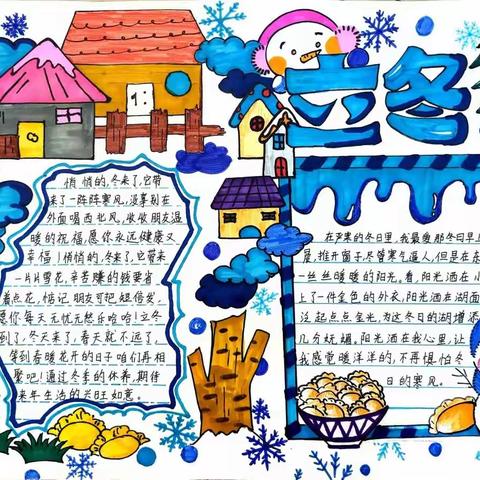 立冬
悄悄的,冬来了,它带
来了一阵阵寒风,没事别在
外面喝西北风,收收朋友温
暖的祝福,愿你永远健康又
幸福!悄悄的,冬来了,它带来
一片片雪花,辛苦赚的钱要省
着点花,惦记朋友可把短信发,
愿你每天无忧无愁乐哈哈!立冬
到了,冬天来了,春天就不远了,
等到春暖花开的日子咱们再相
聚吧!通过冬季的休养,期待
来年生活的兴旺如意。
在严寒的冬日里,我最爱那冬日早
晨,推开窗子尽管寒气逼人,但是在东
一丝丝暖暖的阳光。看,阳光洒在小
上了一件金色的外衣,阳光洒在湖面
泛起点点金光,为这冬日的湖增添
几分妩媚。阳光洒在我心里,让
我感觉暖洋洋的,不再惧怕冬
日的寒风。